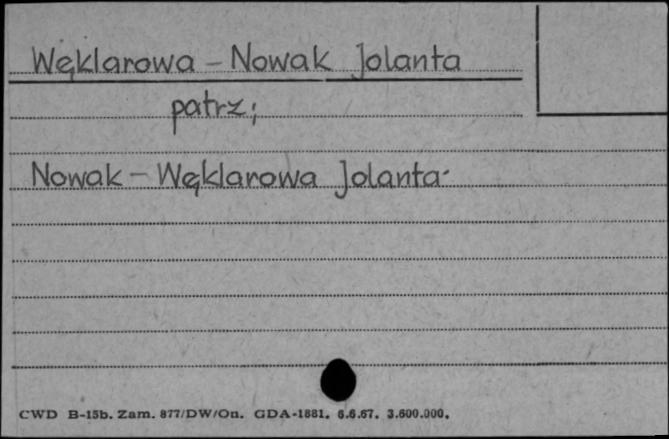 Węklarowa - Nowak Jolanta
patrz;
Nowak - Węklarowa Jolanta
CWD B-15b. Zam. 877/DW/On. GDA-1881. 6.6.67. 3.600.000.